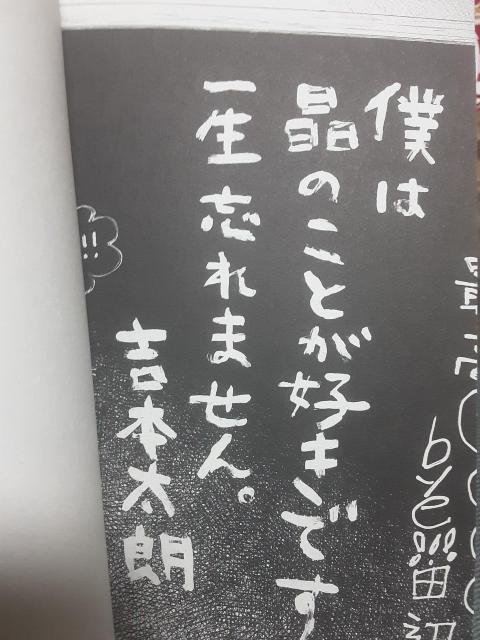 僕は
晶のことが好きです
一生忘れません。
吉本太朗
!!
bye